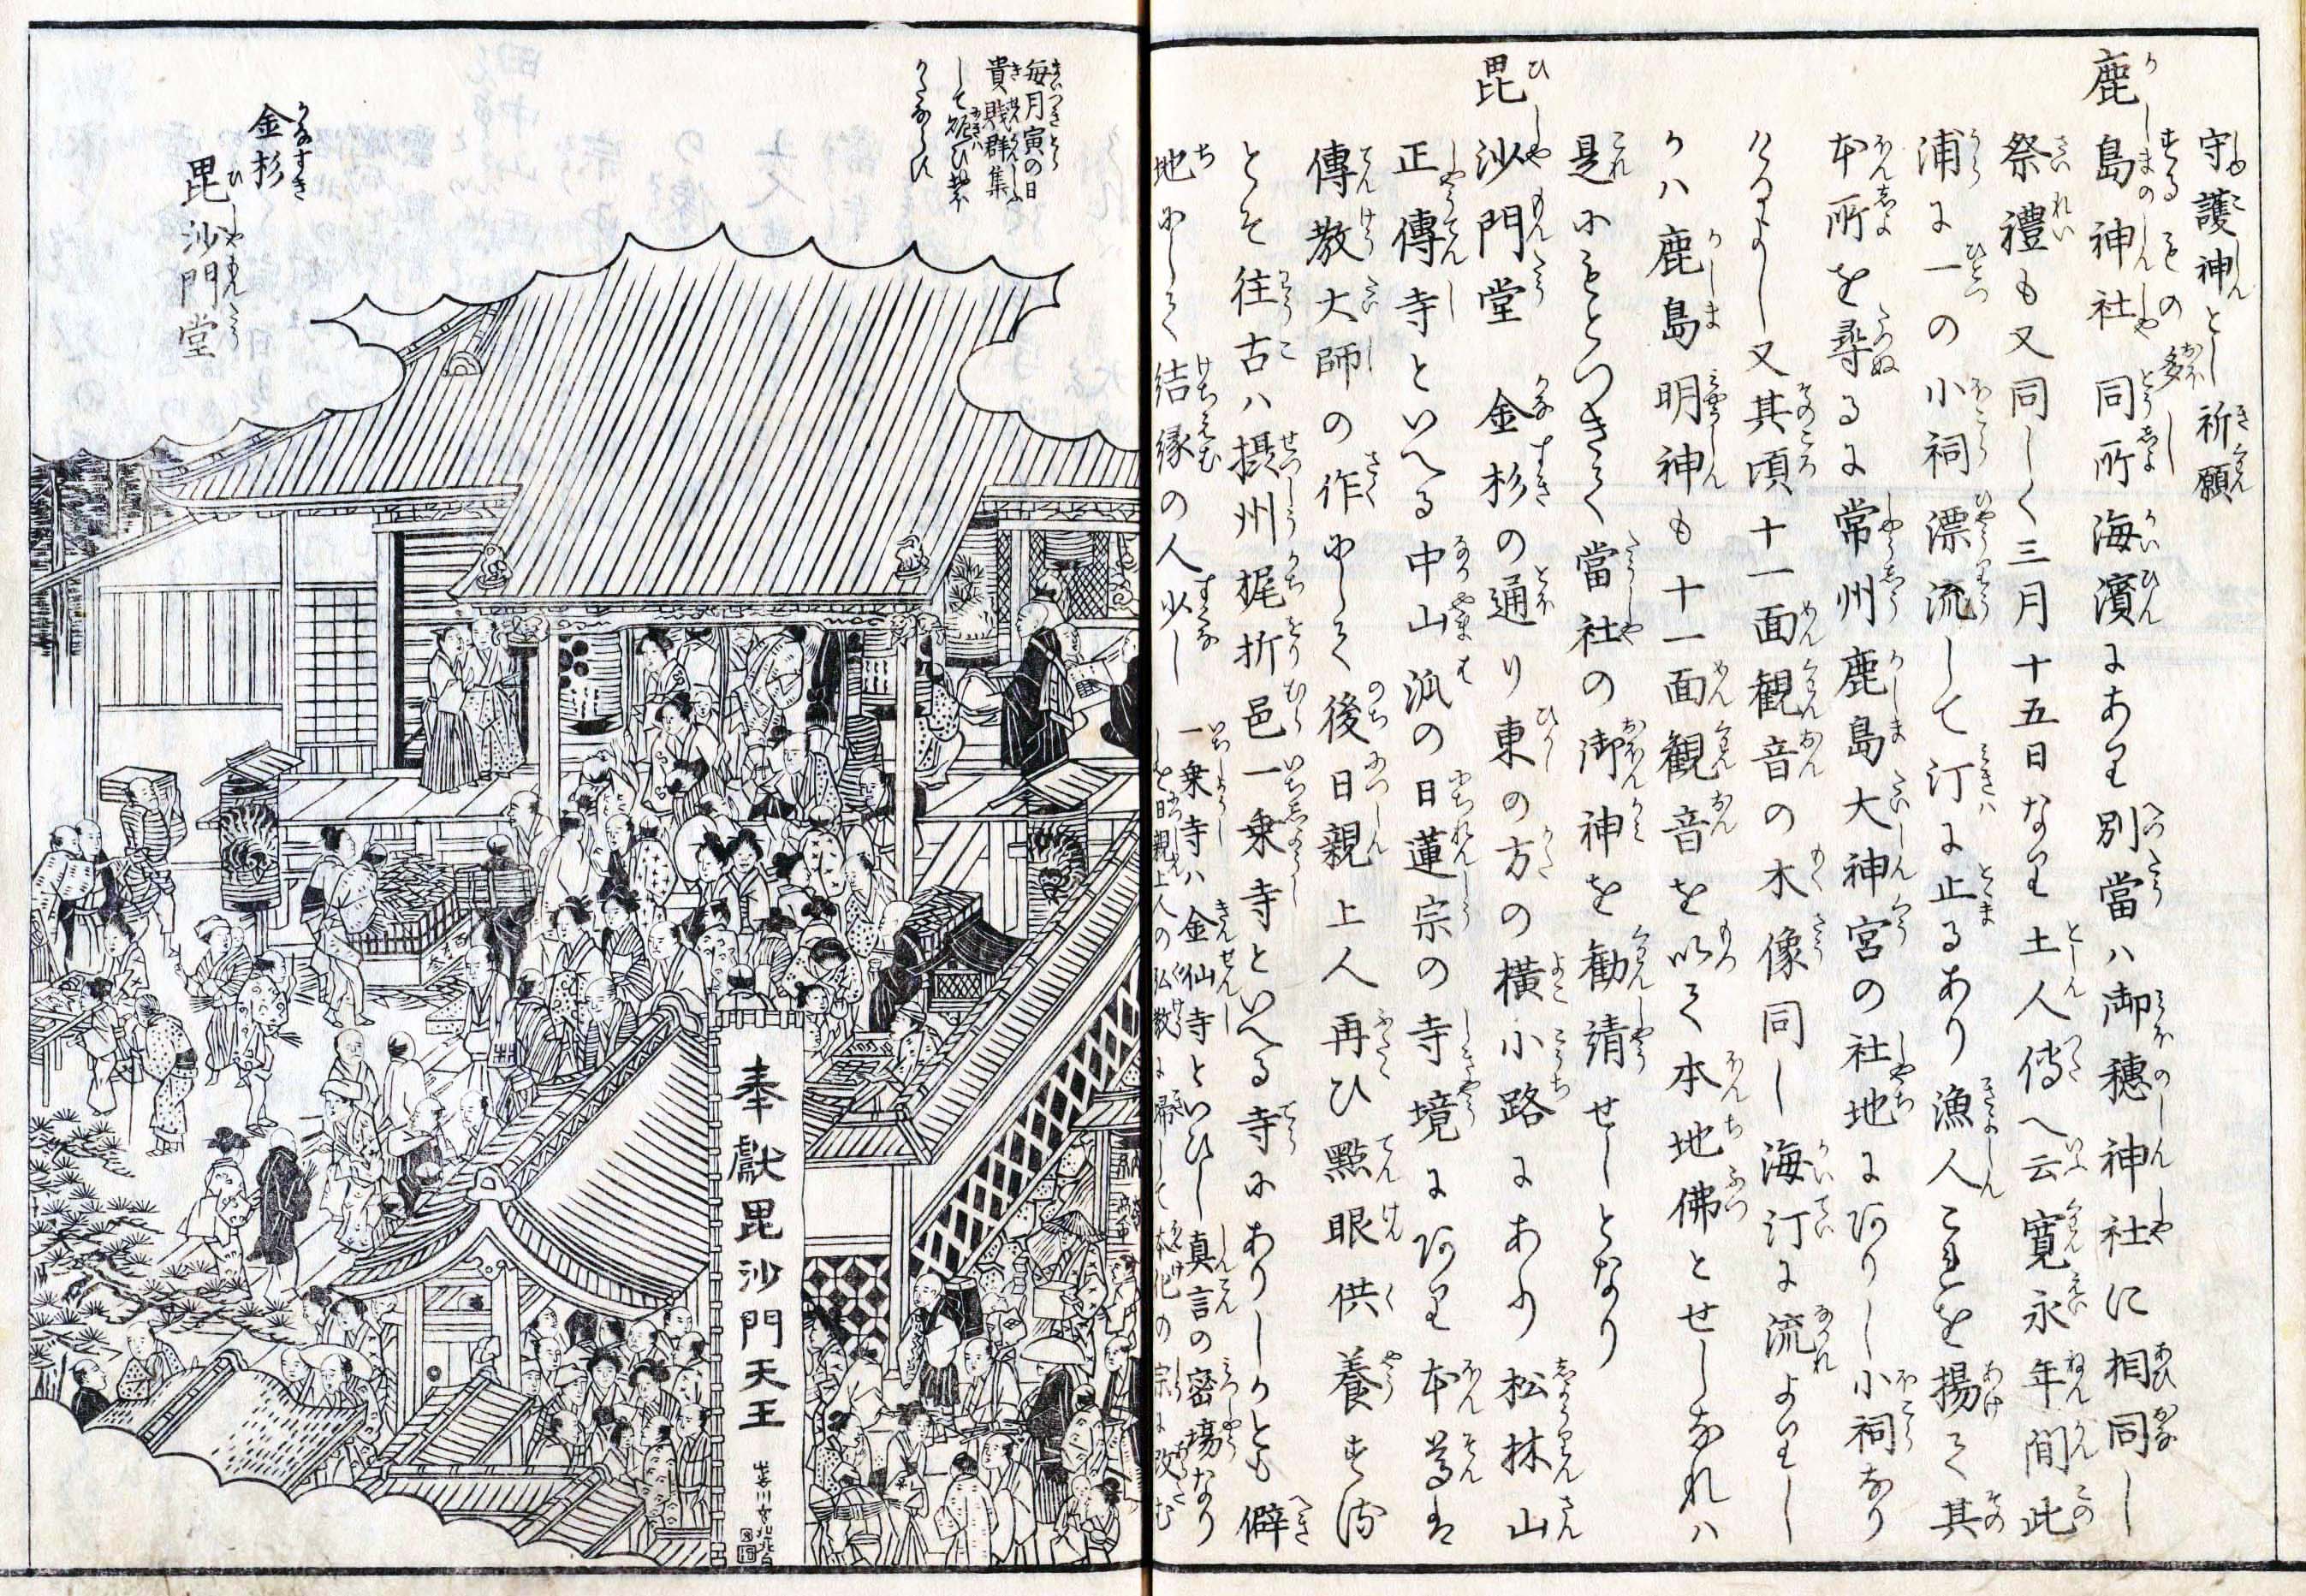 守護神とし祈願
するもの多し
鹿島神社 同所海濱にあり別當ハ御穂神社に相同し
祭禮も又同しく三月十五日なり土人傳へ云寛永年間此
浦に一の小祠漂流して汀に止るあり漁人これを揚て其
本所を尋るに常州鹿島大神宮の社地にありし小祠なり
けるよし又其頃十一面観音の木像同し海汀に流よりし
かハ鹿島明神も十一面観音を以て本地佛とせしなれハ
是にもとつきて當社の御神を勸請せしとなり
毘沙門堂 金杉の通り東の方の横小路にあり松林山
正傳寺といへる中山派の日蓮宗の寺境にあり本尊は
傳教大師の作にして後日親上人再ひ點眼供養す
とそ往古ハ摂州梶折邑一乗寺といへる寺にありしかとも僻
地にして結縁の人少し
一乗寺ハ金仙寺といひし真言の密場なり
しを日親上人の弘教に帰して本化の宗に改む
毎月寅の日
貴賤群集
して
金杉
毘沙門堂
奉獻毘沙門天王